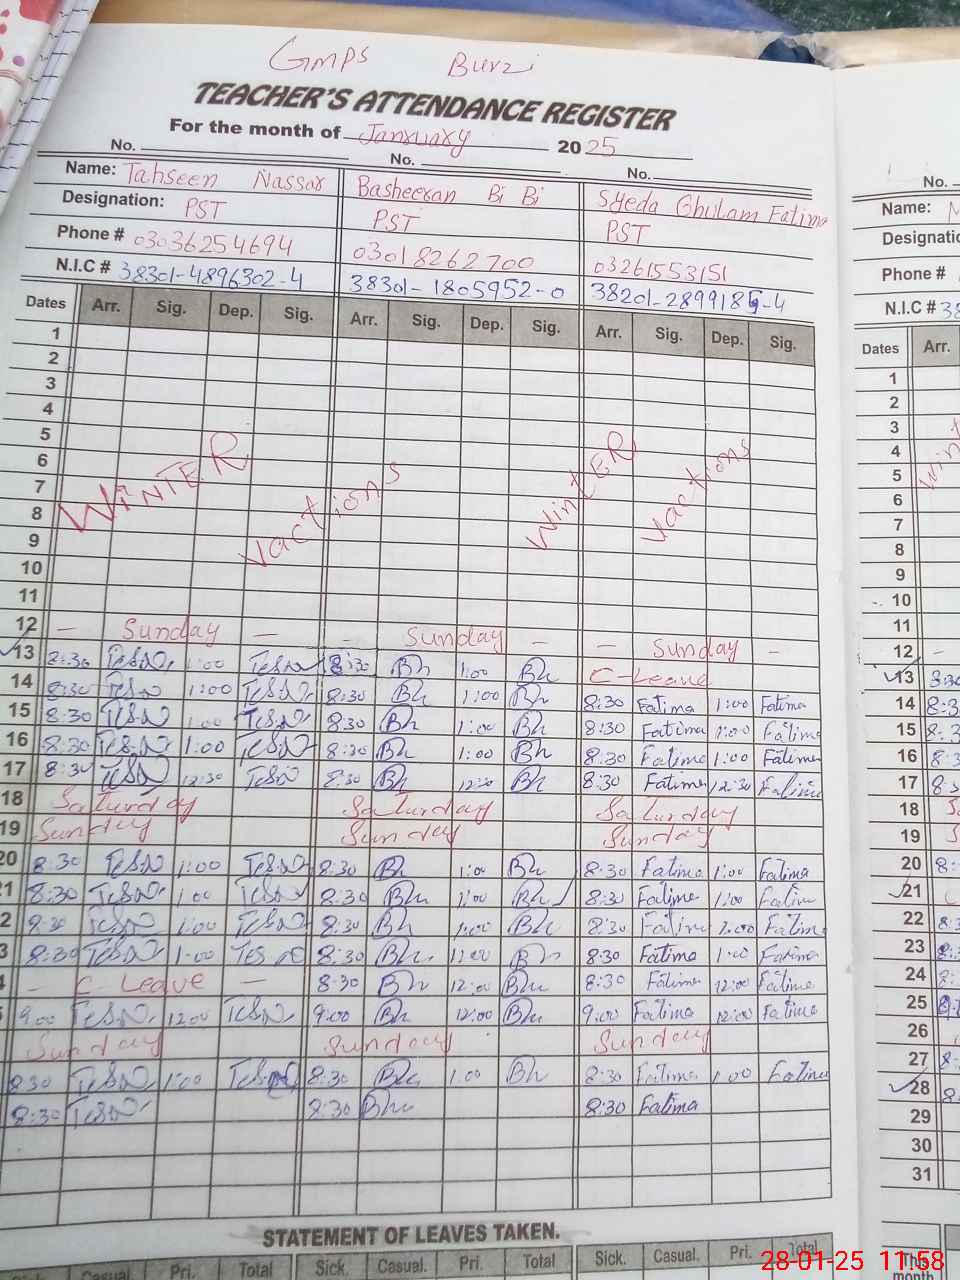 GMPS Burzi
TEACHER'S ATTENDANCE REGISTER
For the month of January 2025
No. No. No. No.
Name: Tahseen Nassar Basheeran Bi Bi Syeda Ghulam Fatima Name:
Designation: PST PST PST
Phone # 03036254694 03018262700 03261553151 Phone #
N.I.C # 38301-4896302-4 38301-1805952-0 38201-2899185-4 N.I.C # 38
Dates Arr. Sig. Dep. Sig. Arr. Sig. Dep. Sig. Arr. Sig. Dep. Sig. Dates Arr.
1 1
2 2
3 3
4 4
5 5
6 6
7 7
8 8
9 9
10 10
11 11
WINTER Vactions WintER Vactions
12 — Sunday — — Sunday — — Sunday — 12 —
13 8:30 1:00 8:30 Bh 1:00 Bh C-Leave 13 8:30
14 8:30 1:00 8:30 Bh 1:00 Bh 8:30 Fatima 1:00 Fatima 14 8:3
15 8:30 1:00 8:30 Bh 1:00 Bh 8:30 Fatima 1:00 Fatima 15 8:3
16 8:30 1:00 8:30 Bh 1:00 Bh 8:30 Fatima 1:00 Fatima 16 8:3
17 8:30 12:30 8:30 Bh 12:30 Bh 8:30 Fatima 12:30 Fatima 17 8:3
18 Saturday Saturday Saturday 18
19 Sunday Sunday Sunday 19
20 8:30 1:00 8:30 Bh 1:00 Bh 8:30 Fatima 1:00 Fatima 20 8:
21 8:30 1:00 8:30 Bh 1:00 Bh 8:30 Fatima 1:00 Fatima 21
2 8:30 1:00 8:30 Bh 1:00 Bh 8:30 Fatima 1:00 Fatima 22 8:3
3 8:30 1:00 8:30 Bh 12:00 Bh 8:30 Fatima 1:00 Fatima 23 8:
4 — C-Leave — 8:30 Bh 12:00 Bh 8:30 Fatima 12:00 Fatima 24 8:
9:00 12:00 9:00 Bh 12:00 Bh 9:00 Fatima 12:00 Fatima 25
Sunday Sunday Sunday 26
8:30 1:00 8:30 Bh 1:00 Bh 8:30 Fatima 1:00 Fatima 27 8:
8:30 8:30 Bh 8:30 Fatima 28 8
29
30
31
STATEMENT OF LEAVES TAKEN.
Casual. Pri. Total Sick. Casual. Pri. Total Sick. Casual. Pri. Total This month
28-01-25 11:58